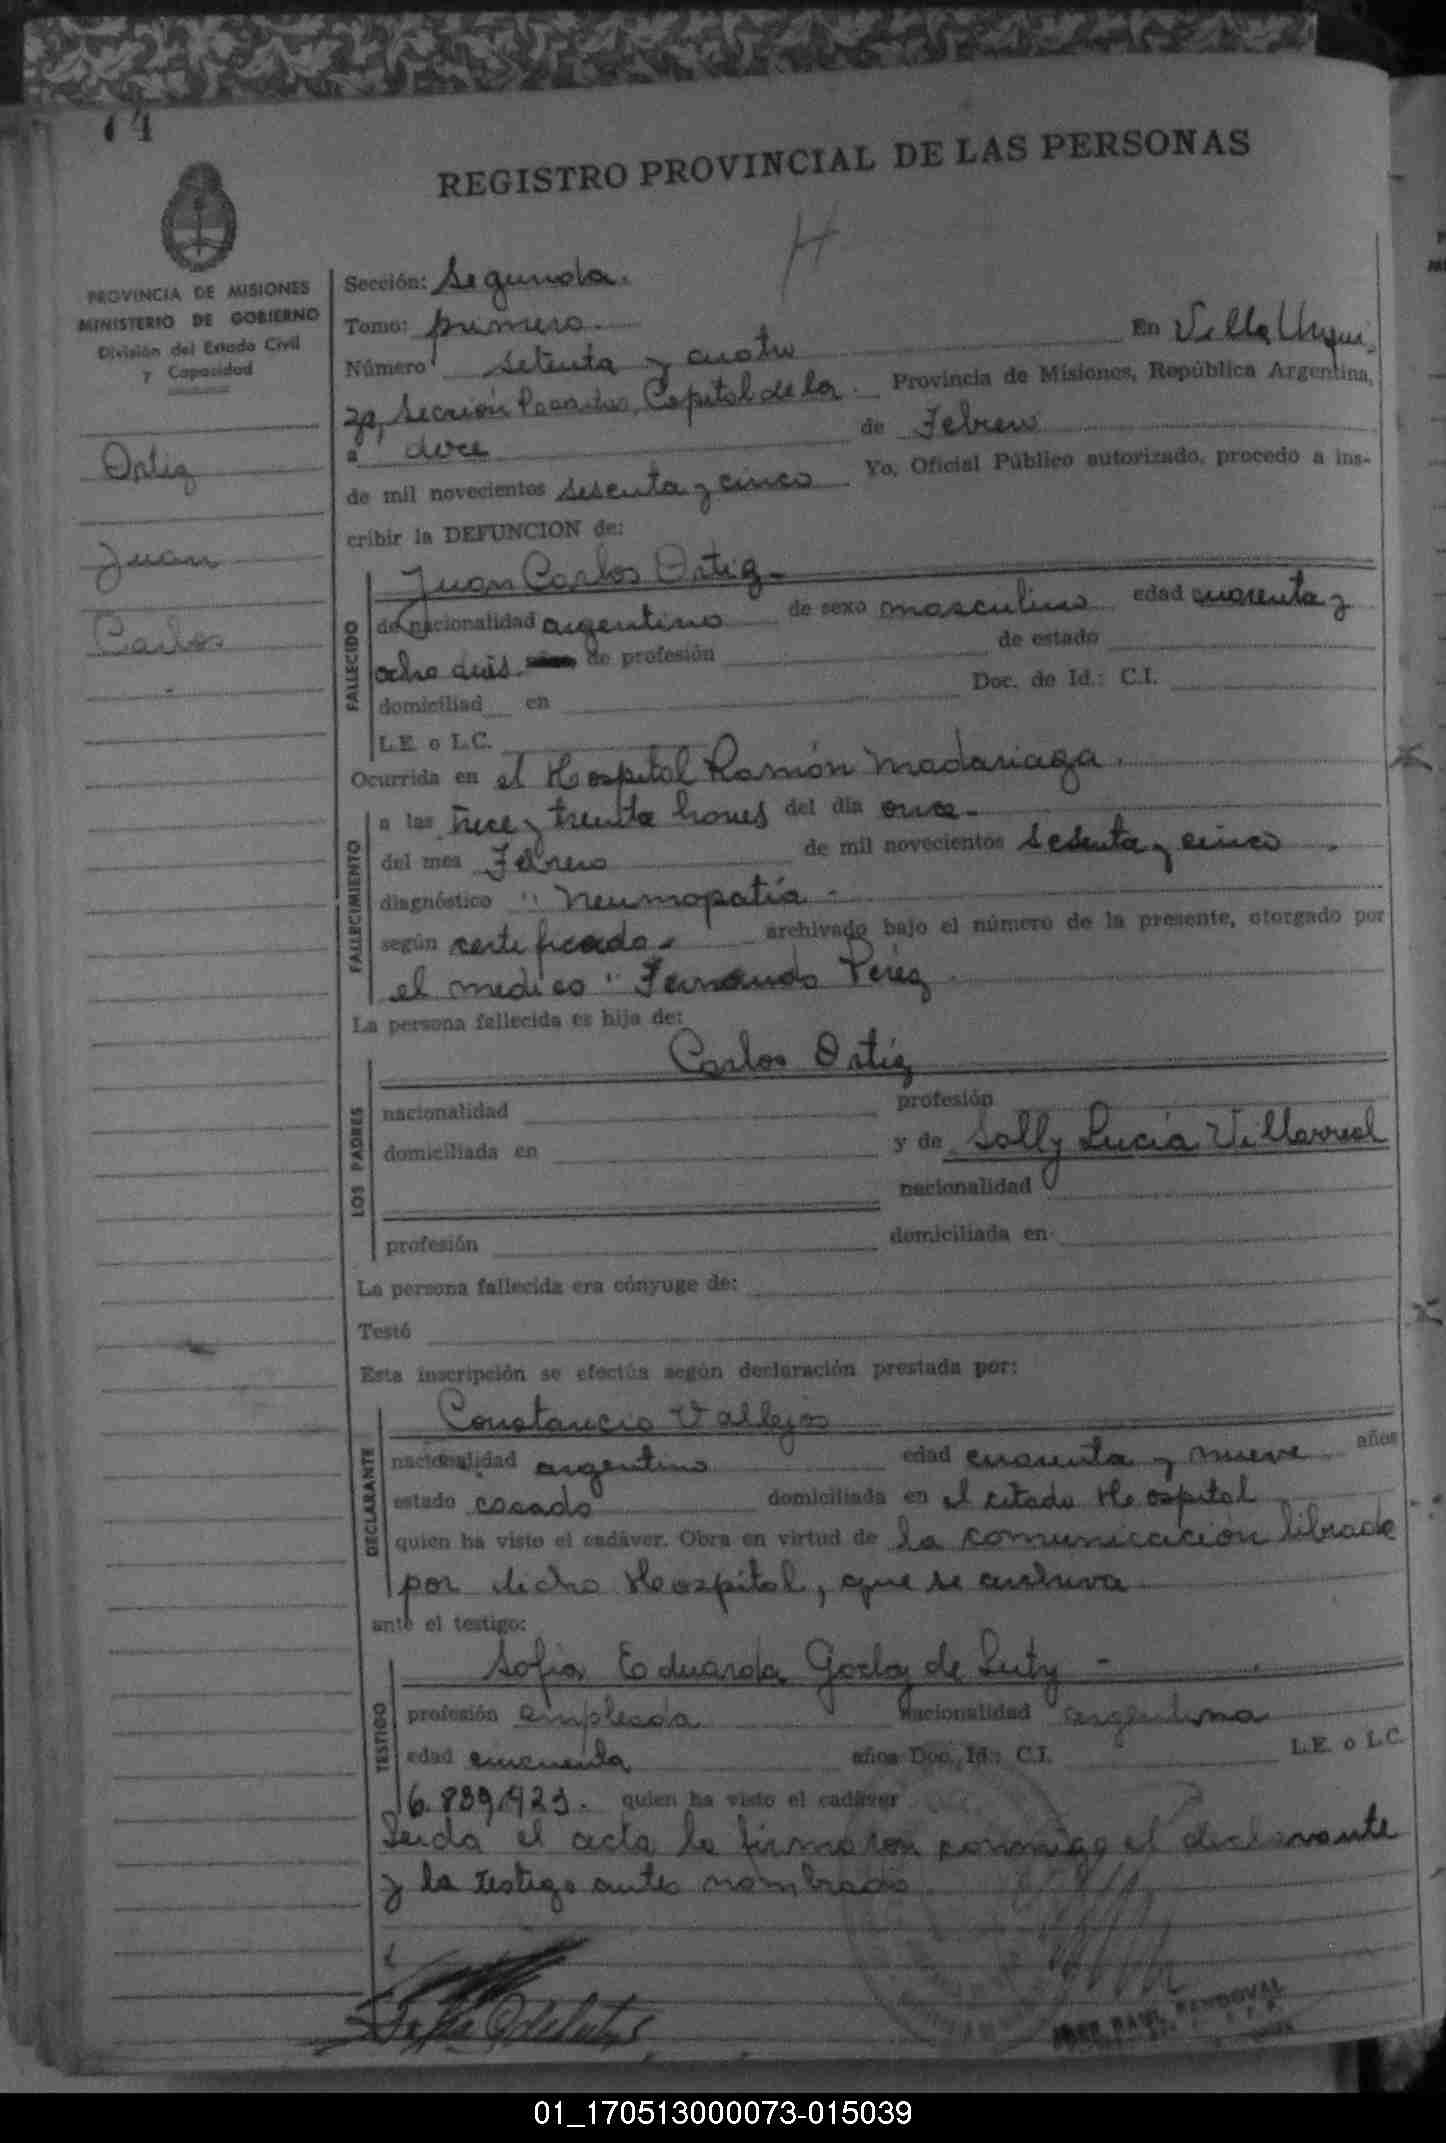 74
REGISTRO PROVINCIAL DE LAS PERSONAS
H
PROVINCIA DE MISIONES
MINISTERIO DE GOBIERNO
División del Estado Civil
y Capacidad
Ortiz
Juan
Carlos
Sección: Segunda.
Tomo: primero.
Número setenta y cuatro En Villa Urqui-
za, Sección Posadas, Capital de la Provincia de Misiones, República Argentina,
a doce de Febrero
de mil novecientos sesenta y cinco Yo, Oficial Público autorizado, procedo a ins-
cribir la DEFUNCION de:
FALLECIDO
Juan Carlos Ortiz-
de nacionalidad argentino de sexo masculino edad cuarenta y
ocho de profesión de estado
domiciliad en Doc. de Id.: C.I.
L.E. o L.C.
Ocurrida en el Hospital Ramón Madariaga.
FALLECIMIENTO
a las trece y treinta horas del día once-
del mes Febrero de mil novecientos sesenta y cinco
diagnóstico " Neumopatía -
según certificado- archivado bajo el número de la presente, otorgado por
el medico " Fernando Pérez
La persona fallecida es hija de:
LOS PADRES
Carlos Ortiz
nacionalidad profesión
domiciliada en y de Solly Lucía Villarreal
nacionalidad
profesión domiciliada en
La persona fallecida era cónyuge de:
Testó
Esta inscripción se efectúa según declaración prestada por:
DECLARANTE
Constancio Vallejos
nacionalidad argentino edad cuarenta y nueve años
estado casado domiciliada en el citado Hospital
quien ha visto el cadáver. Obra en virtud de la comunicación librada
por dicho Hospital, que se archiva
ante el testigo:
TESTIGO
Sofia Eduarda Godoy de Luty -
profesión empleada nacionalidad argentina
edad cincuenta años Doc. Id.: C.I. L.E. o L.C.
6.839.923. quien ha visto el cadáver
Leida el acta la firmaron conmigo el declarante
y la testigo antes nombrados
RAUL SANDOVAL
01_170513000073-015039